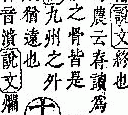 說文終也
農云春讀為
之骨皆是
九州之外
猶遠也
音濱說文